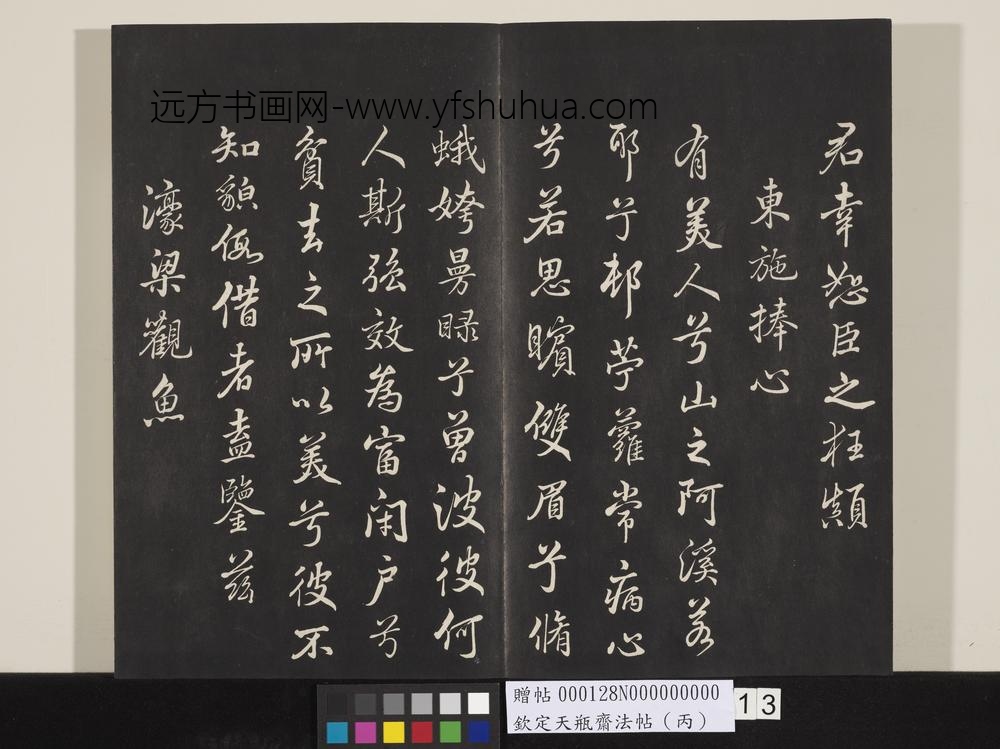 远方书画网-www.yfshuhua.com
君幸恕臣之狂顛
東施捧心
有美人兮山之阿溪若
耶兮邨苧蘿常病心
兮若思矉雙眉兮脩
蛾姱曼睩兮曾波彼何
人斯强效為富閉户兮
貧去之所以美兮彼不
知貌假借者盍鑒兹
濠梁觀魚
贈帖 000128N000000000
欽定天瓶齋法帖（丙）
13